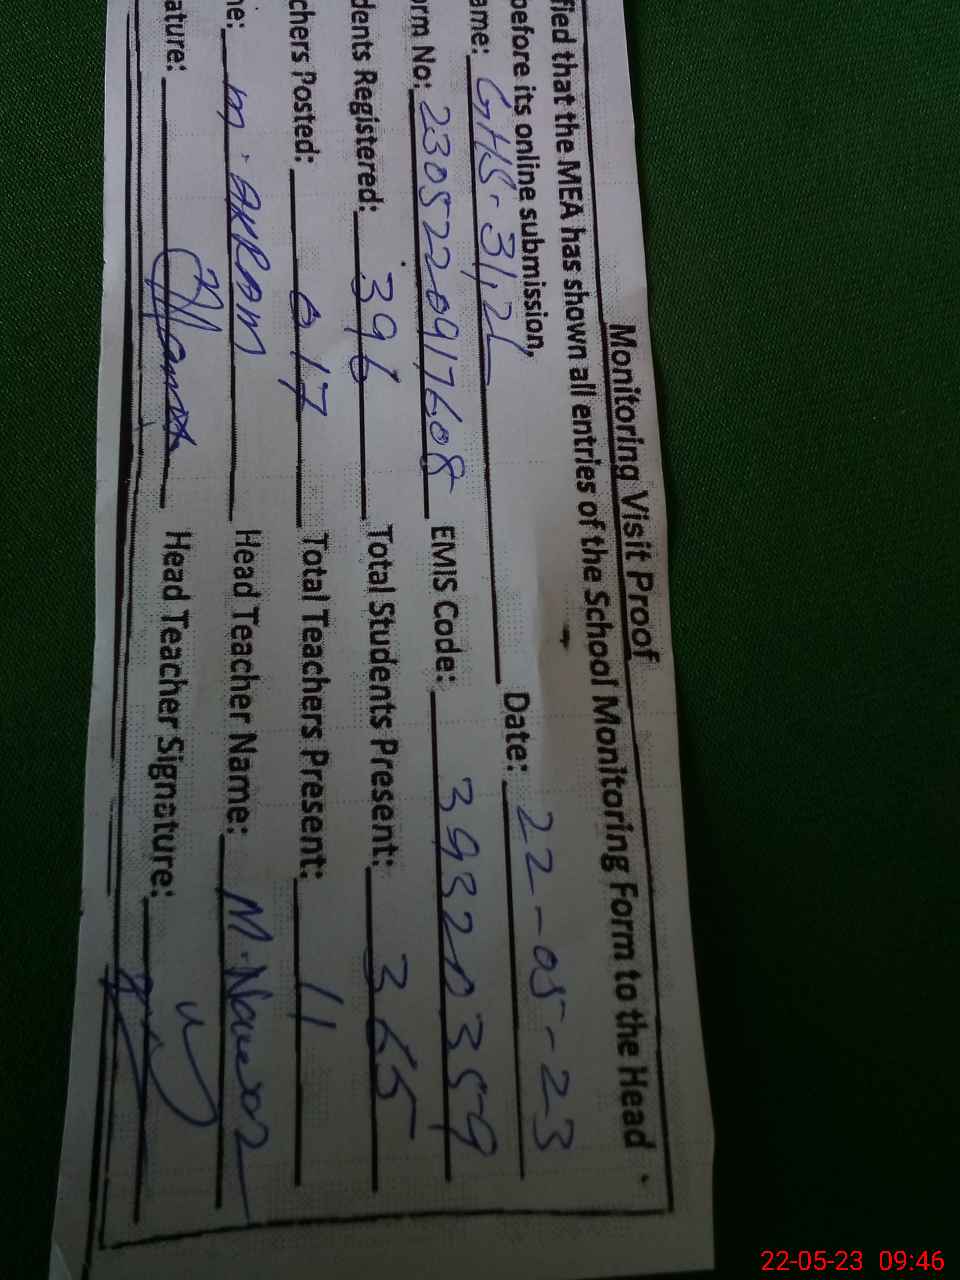 Monitoring Visit Proof
fied that the MEA has shown all entries of the School Monitoring Form to the Head
before its online submission,
ame: GHS-31,2L Date: 22-05-23
orm No: 2305220917608 EMIS Code: 39320359
dents Registered: 396 Total Students Present: 365
chers Posted: 017 Total Teachers Present: 11
ne: M. AKRAM Head Teacher Name: M. Nawaz
ature: Head Teacher Signature:
22-05-23 09:46